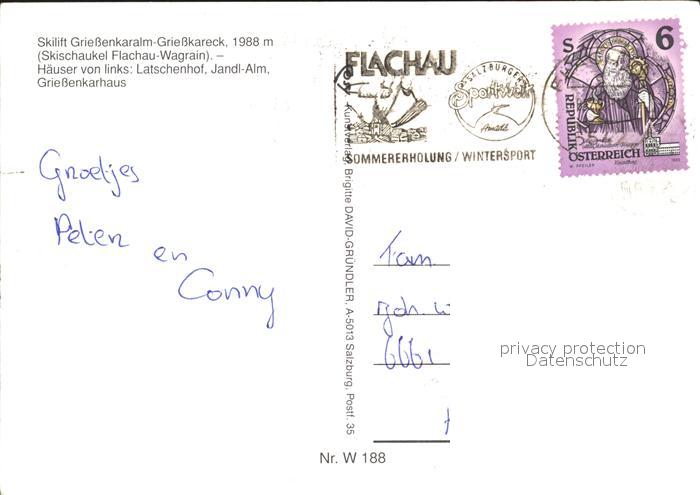 Skilift Grießenkaralm-Grießkareck, 1988 m
(Skischaukel Flachau-Wagrain). –
Häuser von links: Latschenhof, Jandl-Alm,
Grießenkarhaus
Groetjes
Peter en
Conny
FLACHAU
SALZBURGER
Sportwelt
Amadé
SOMMERERHOLUNG / WINTERSPORT
S 6
REPUBLIK
ÖSTERREICH
Kunstverlag Brigitte DAVID-GRÜNDLER, A-5013 Salzburg, Postf. 35
Fam.
6661
privacy protection
Datenschutz
Nr. W 188